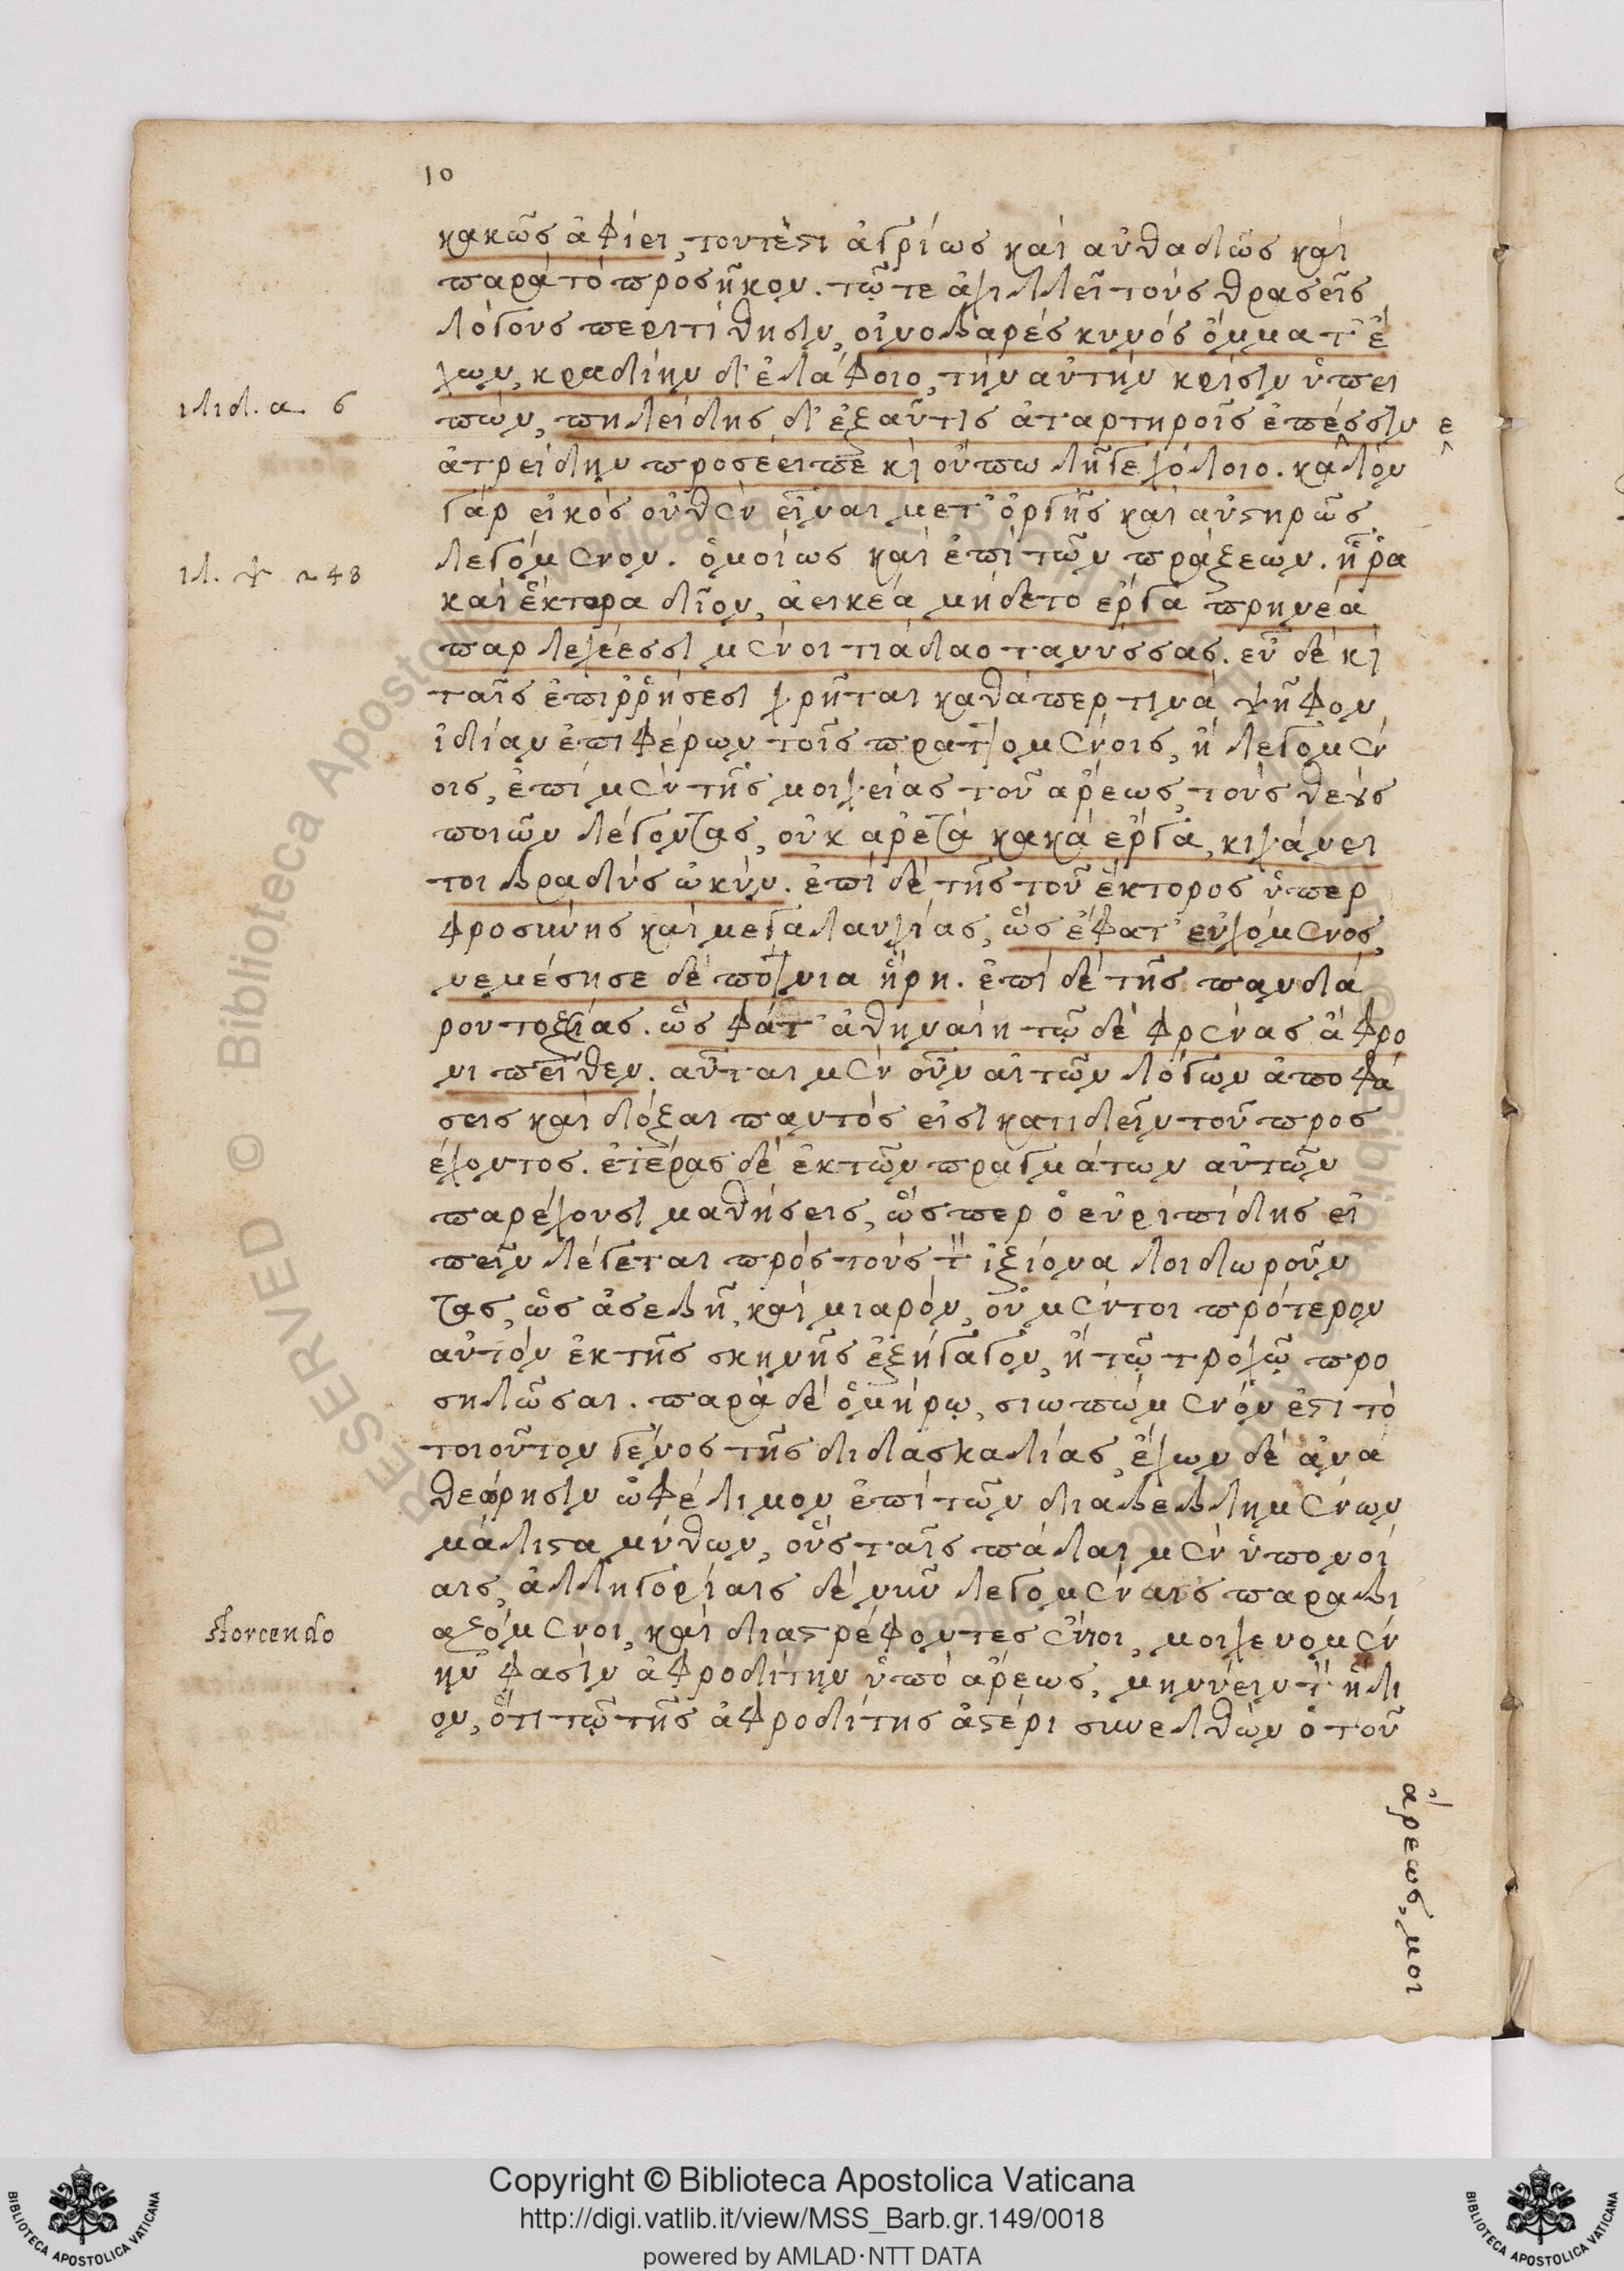 10
κακῶς ἀφίει, τουτέστι ἀγρίως καὶ αὐθαδῶς καὶ
παρὰ τὸ προσῆκον. τῷ τε ἀχιλλεῖ τοὺς θρασεῖς
λόγους περιτίθησιν, οἰνοβαρὲς κυνὸς ὄμματ' ἔ
χων, κραδίην δ' ἐλάφοιο, τὴν αὐτὴν κρίσιν ὑπει
ιλιδ. α. 6
πών, πηλείδης δ' ἐξαῦτις ἀταρτηροῖς ἐπέσσιν ε
ἀτρείδην προσεειπε κὶ οὔπω λῆγε χόλοιο. καλόν
γὰρ εἰκὸς οὐθὲν εἶναι μετ' ὀργῆς καὶ αὐστηρῶς
ιλ. ψ ~48
λεγόμενον. ὁμοίως καὶ ἐπὶ τῶν πράξεων. ἦ ῥα
καὶ ἕκτορα δῖον, ἀεικέα μήδετο ἔργα πρηνέα
παρ λεχέεσσι μενοιτιάδαο τανύσσας. εὖ δὲ κὶ
ταῖς ἐπιῤῥήσεσι χρῆται καθάπερ τινὰ ψῆφον
ἰδίαν ἐπιφέρων τοῖς πραττομένοις, ἢ λεγομέν
οις, ἐπὶ μὲν τῆς μοιχείας τοῦ ἄρεως, τοὺς θεοὺς
ποιῶν λέγοντας, οὐκ ἀρετᾷ κακὰ ἔργα, κιχάνει
τοι βραδὺς ὠκύν. ἐπὶ δὲ τῆς τοῦ ἕκτορος ὑπερ
φροσύνης καὶ μεγαλαυχίας, ὣς ἔφατ' εὐχόμενος,
νεμέσησε δὲ πότνια ἥρη. ἐπὶ δὲ τῆς πανδά
ρου τοξίας. ὣς φάτ' ἀθηναίη τῷ δὲ φρένας ἄφρο
νι πεῖθεν. αὗται μὲν οὖν αἱ τῶν λόγων ἀποφά
σεις καὶ δόξαι παντός εἰσι κατιδεῖν τοῦ προς
έχοντος. ἑτέρας δὲ ἐκ τῶν πραγμάτων αὐτῶν
παρέχουσι μαθήσεις, ὥσπερ ὁ εὐριπίδης εἰ
πεῖν λέγεται πρὸς τοὺς τὸν ἰξίονα λοιδωροῦν
τας, ὡς ἀσεβῆ, καὶ μιαρόν, οὐ μέντοι πρότερον
αὐτὸν ἐκ τῆς σκηνῆς ἐξήγαγον, ἢ τῷ τροχῷ προ
σηλῶσαι. παρὰ δὲ ὁμήρῳ, σιωπώμενόν ἐστι τὸ
τοιοῦτον γένος τῆς διδασκαλίας, ἔχων δὲ ἀνα
θεώρησιν ὠφέλιμον ἐπὶ τῶν διαβεβλημένων
μάλιστα μύθων, οὓς ταῖς πάλαι μὲν ὑπονοί
αις, ἀλληγορίαις δὲ νῦν λεγομέναις παραβι
Storcendo
αζόμενοι, καὶ διαστρέφοντες ἔνιοι, μοιχευομέν
ην φασὶν ἀφροδίτην ὑπὸ ἄρεως, μηνύειν τὸν ἥλι
ον, ὅτι τῷ τῆς ἀφροδίτης ἀστέρι συνελθὼν ὁ τοῦ
ἄρεως, μοι
RESERVED © Biblioteca Apostolica Vaticana
Copyright © Biblioteca Apostolica Vaticana
http://digi.vatlib.it/view/MSS_Barb.gr.149/0018
powered by AMLAD·NTT DATA
BIBLIOTECA APOSTOLICA VATICANA
BIBLIOTECA APOSTOLICA VATICANA